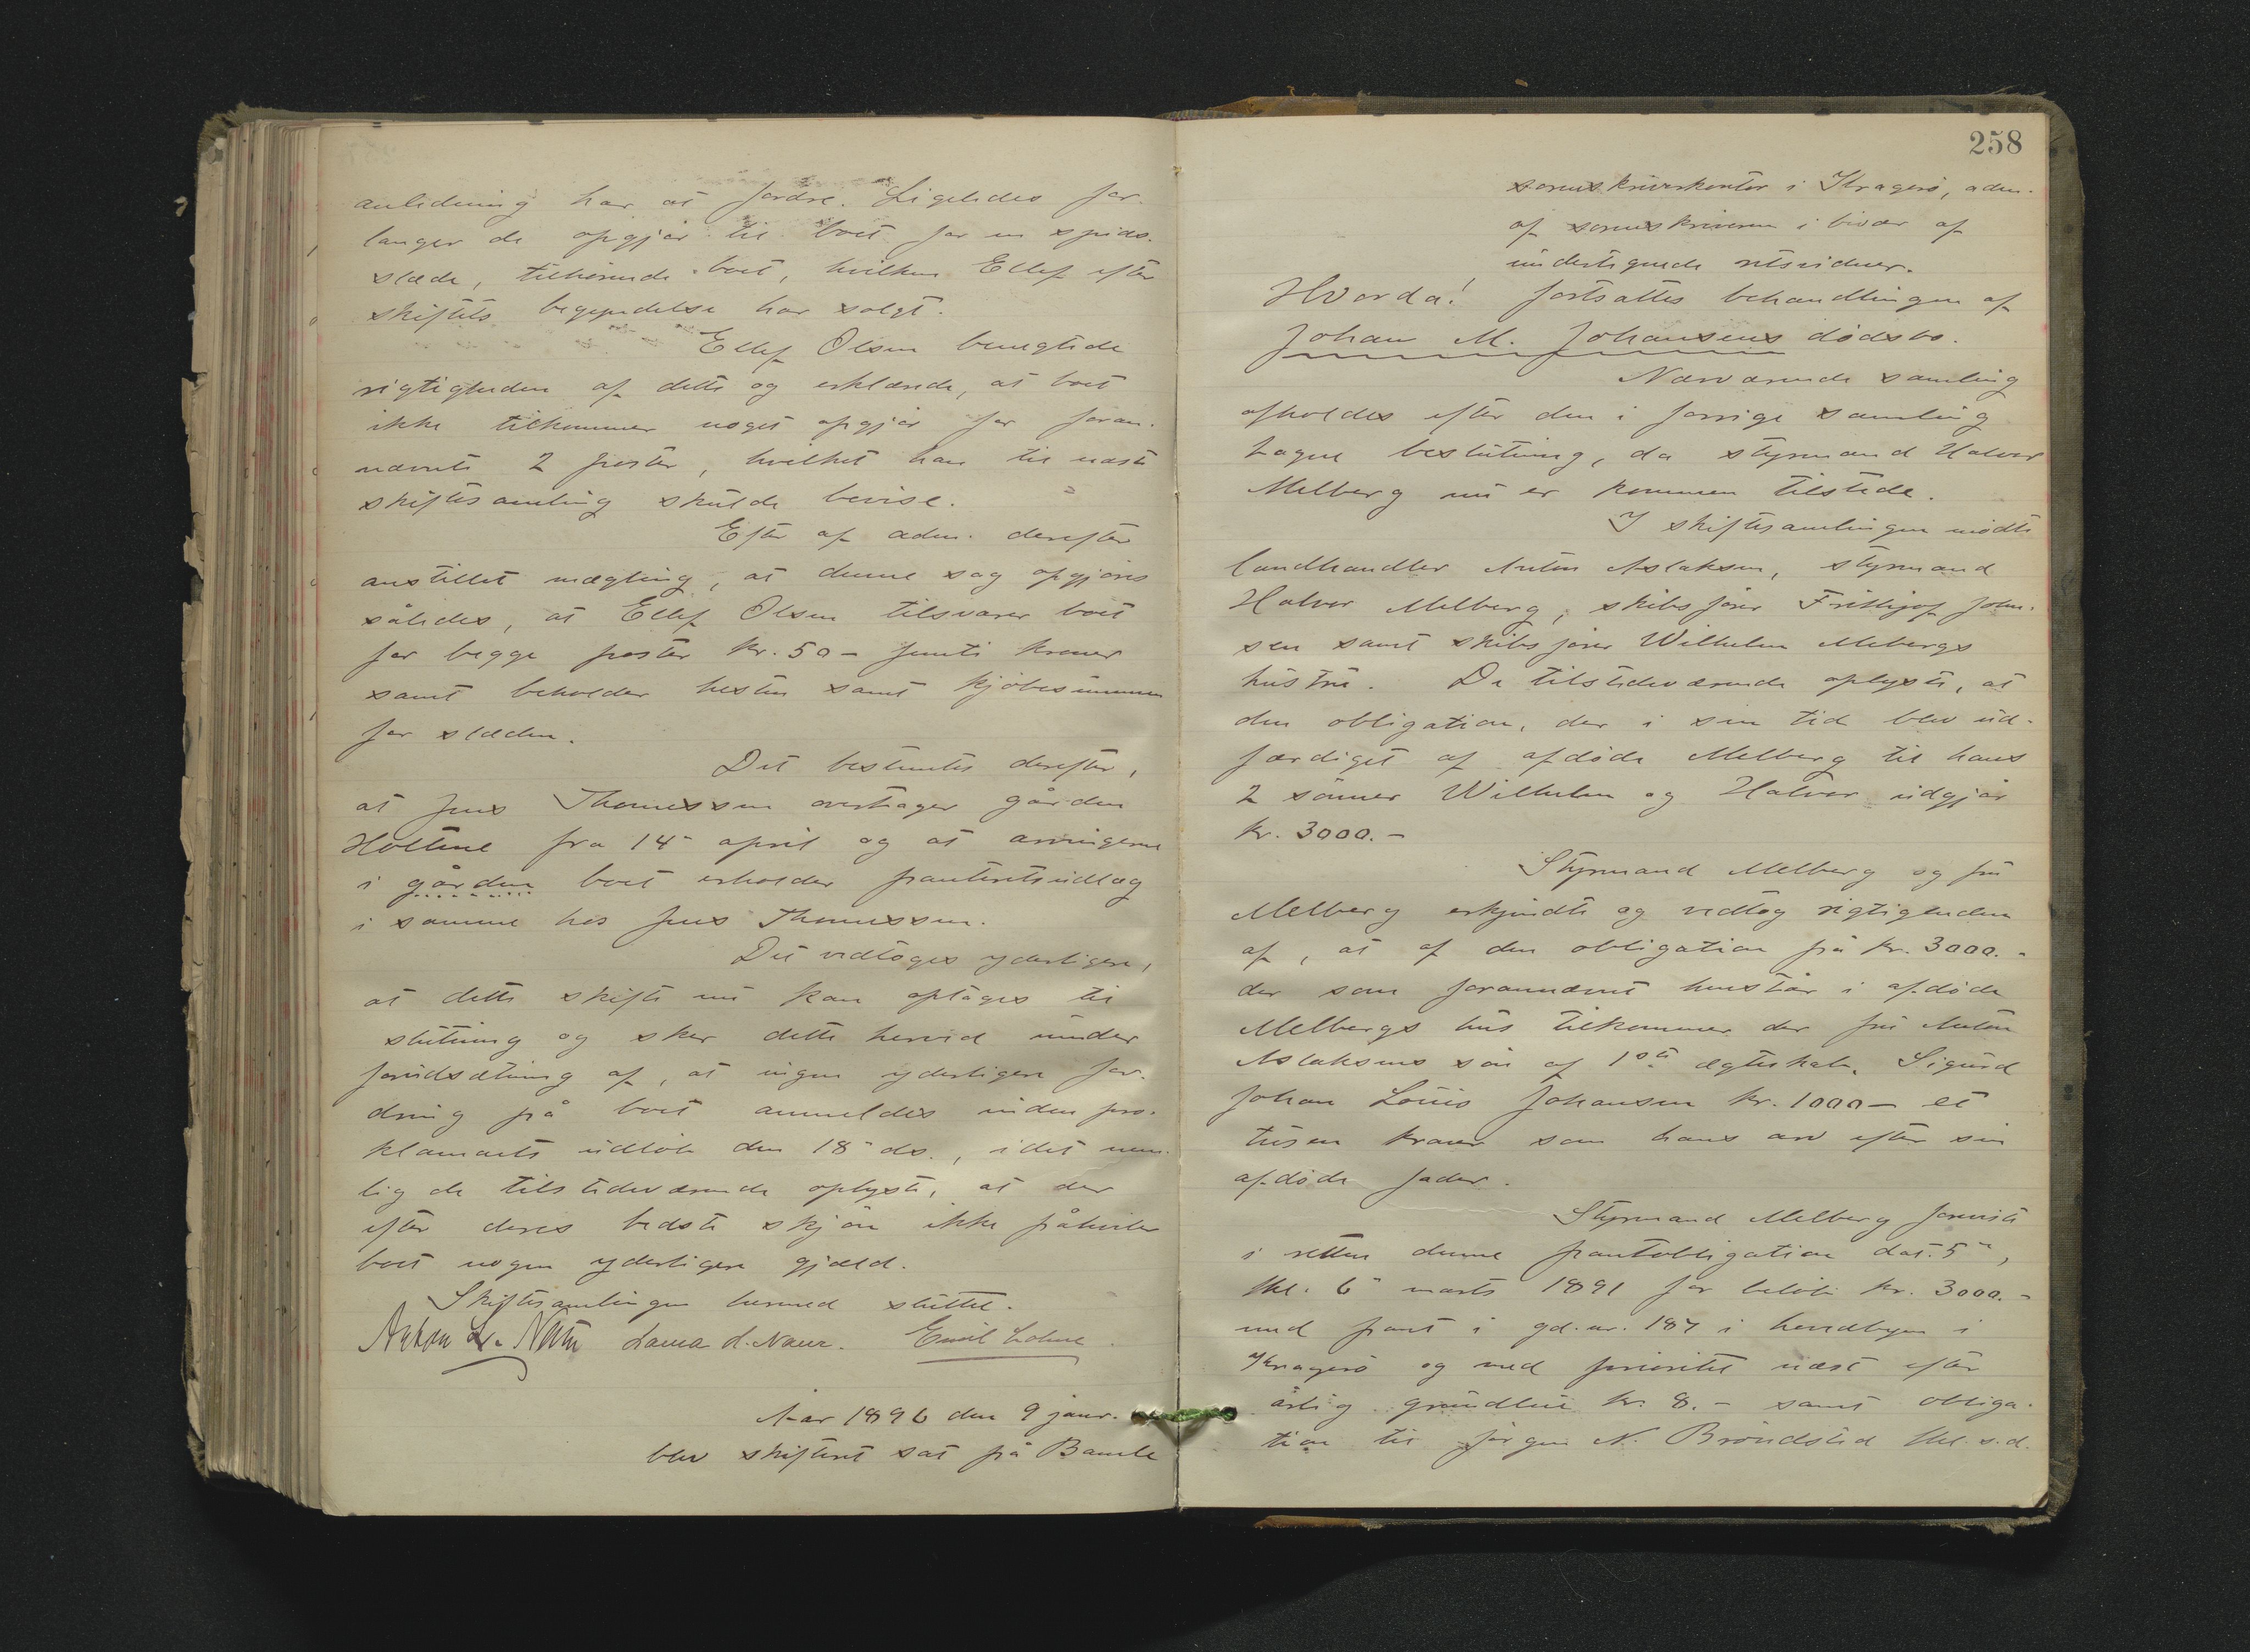 anledning har at fordre. Ligeledes for-
langer de opgjør til boet for en spids-
slæde, tilhørende boet, hvilken Ellef efter
skiftets begyndelse har solgt.
Ellef Olsen benegtede
rigtigheden af dette og erklærede, at boet
ikke tilkommer noget opgjør for foran-
nævnte 2 poster, hvilket han til næste
skiftesamling skulde bevise.
Efter af adm. derefter
anstillet mægling, at denne sag opgjøres
således, at Ellef Olsen tilsvarer boet
for begge poster kr. 50 - femti kroner
samt beholder hesten samt kjøbesummen
for slæden.
Det bestemtes derefter,
at Jens Thomessen overtager gården
Holtane fra 14- april og at arvingerne
i gården boet erholder panteretsudlæg
i samme hos Jens Thomessen.
Det vedtoges yderligere,
at dette skifte nu kan optages til
slutning og sker dette herved under
forudsætning af, at ingen yderligere for-
dring på boet anmeldes inden pro-
klamaets udløb den 18- ds., idet nem-
lig de tilstedeværende oplyste, at der
efter deres bedste skjøn ikke påhviler
boet nogen yderligere gjæld.
Skiftesamlingen hermed sluttet.
Anton L. Næss Laura L. Næss. Emil Lohne
Aar 1896 den 9 janr.
blev skifteret sat på Bamle
258
sorenskriverkontor i Kragerø, adm.
af sorenskriveren i bivær af
undertegnede retsvidner.
Hvorda! fortsattes behandlingen af
Johan M. Johansens dødsbo.
Nærværende samling
afholdes efter den i forrige samling
tagne beslutning, da styrmand Halvor
Melberg nu er kommen tilstede.
I skiftesamlingen mødte
landhandler Anton Aslaksen, styrmand
Halvor Melberg, skibsfører Frithjof John-
sen samt skibsfører Wilhelm Mebergs
hustru. De tilstedeværende oplyste, at
den obligation, der i sin tid blev ud-
færdiget af afdøde Melberg til hans
2 sønner Wilhelm og Halvor udgjør
kr. 3000.-
Styrmand Melberg og fru
Melberg erkjendte og vedtog rigtigheden
af, at af den obligation på kr. 3000.-
der som forannævnt henstår i afdøde
Melbergs hus tilkommer der fru Anton
Aslaksens søn af 1ste ægteskab, Sigurd
Johan Louis Johansen kr. 1000 - et
tusen kroner som hans arv efter sin
afdøde fader.
Styrmand Melberg foreviste
i retten denne pantobligation dat. 5-,
thl. 6- marts 1891 for beløb kr. 3000.-
med pant i gd. nr. 187 i herredbyen i
Kragerø og med prioritet næst efter
årlig grundleie kr. 8.- samt obliga-
tion til Jørgen N. Brøndsted thl. s.d.